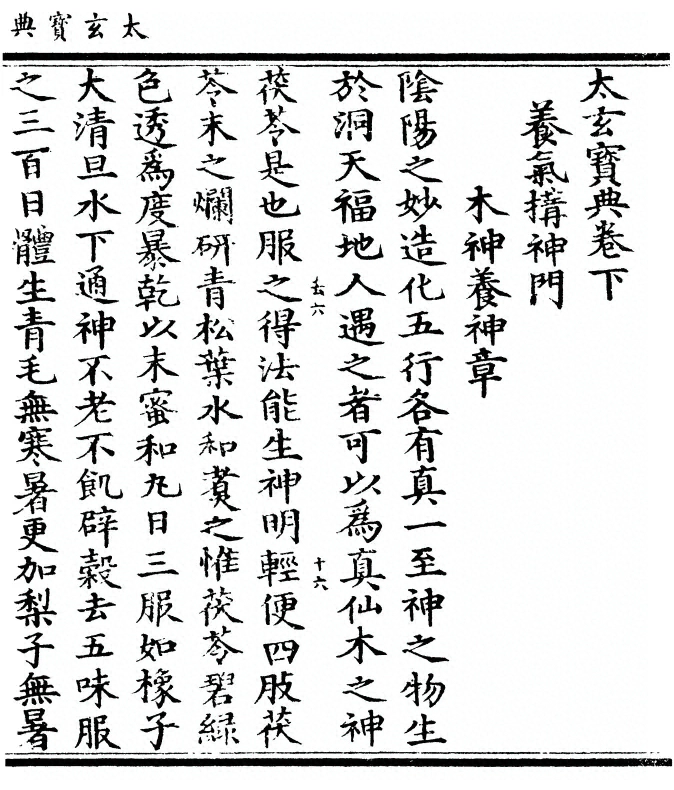 太玄寶典
太玄寶典卷下
養氣搆神門
木神養神章
陰陽之妙造化五行各有真一至神之物生
於洞天福地人遇之者可以為真仙木之神
去六
十六
茯苓是也服之得法能生神明輕便四肢茯
苓末之爛研青松葉水和煑之惟茯苓碧緑
色透為度暴乾以末蜜和丸日三服如橡子
大清旦水下通神不老不飢辟穀去五味服
之三百日體生青毛無寒暑更加梨子無暑